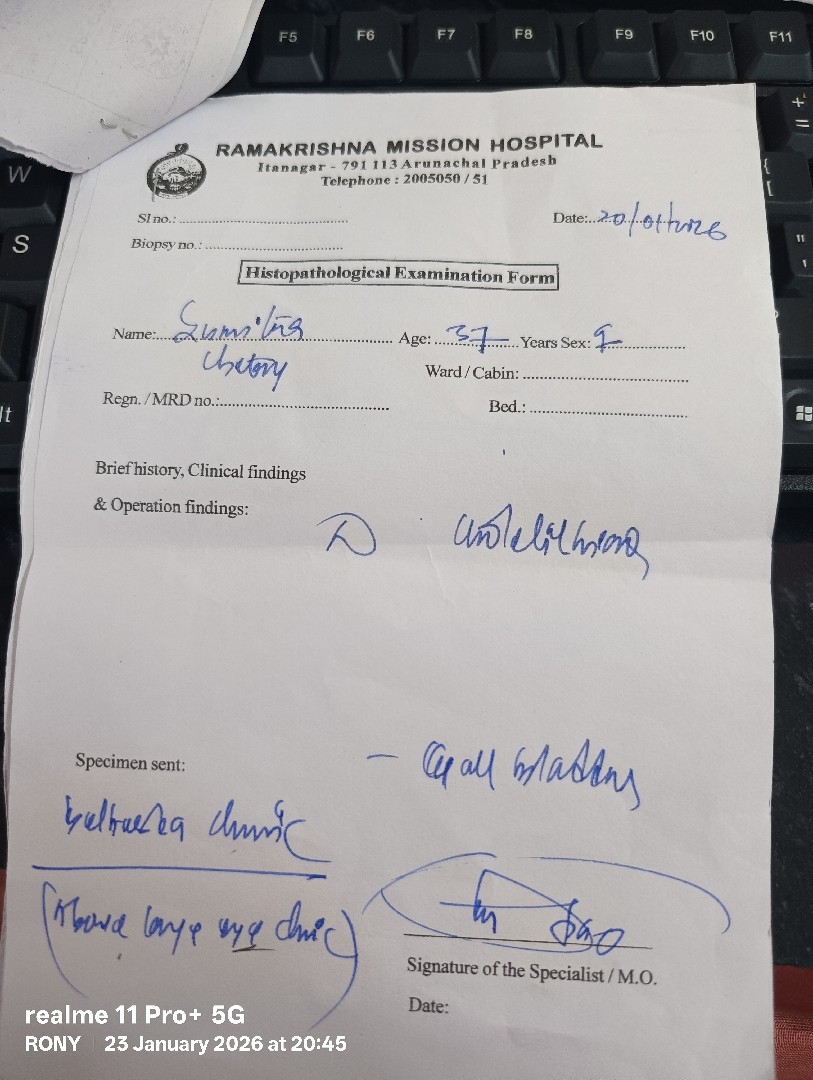 F5 F6 F7 F8 F9 F10 F11
W
S
RAMAKRISHNA MISSION HOSPITAL
Itanagar - 791 113 Arunachal Pradesh
Telephone : 2005050 / 51
Sl no.:
Date:
Biopsy no.:
Histopathological Examination Form
Name:
Age: 37 Years Sex: ♀
Ward / Cabin:
Regn. / MRD no.:
Bed.:
Brief history, Clinical findings
& Operation findings:
Specimen sent:
- Gall bladder
clinic
eye clinic)
Signature of the Specialist / M.O.
Date:
realme 11 Pro+ 5G
RONY 23 January 2026 at 20:45